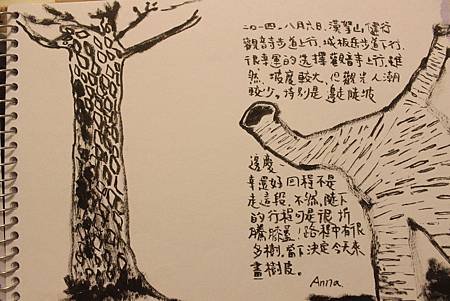 二〇一四、八月六日、漢拏山健行
觀音寺步道上行，城板岳步道下行，
很幸運的選擇觀音寺上行，雖
然，坡度較大，但觀光人潮
較少。特別是，邊走陡坡
邊慶
幸還好回程不是
走這段，不然，陡下
的行程可是很折
騰膝蓋！路程中有很
多樹，當下決定今天來
畫樹皮。
Anna